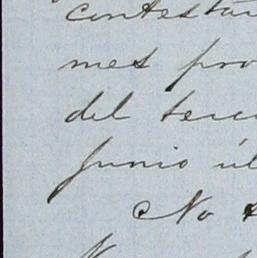 contestan
mes pro
del terc
Junio úl
No